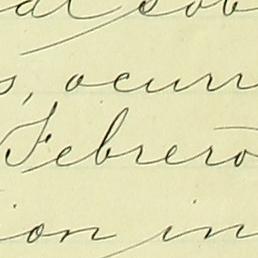 al sob
s, ocurr
Febrero
ion in